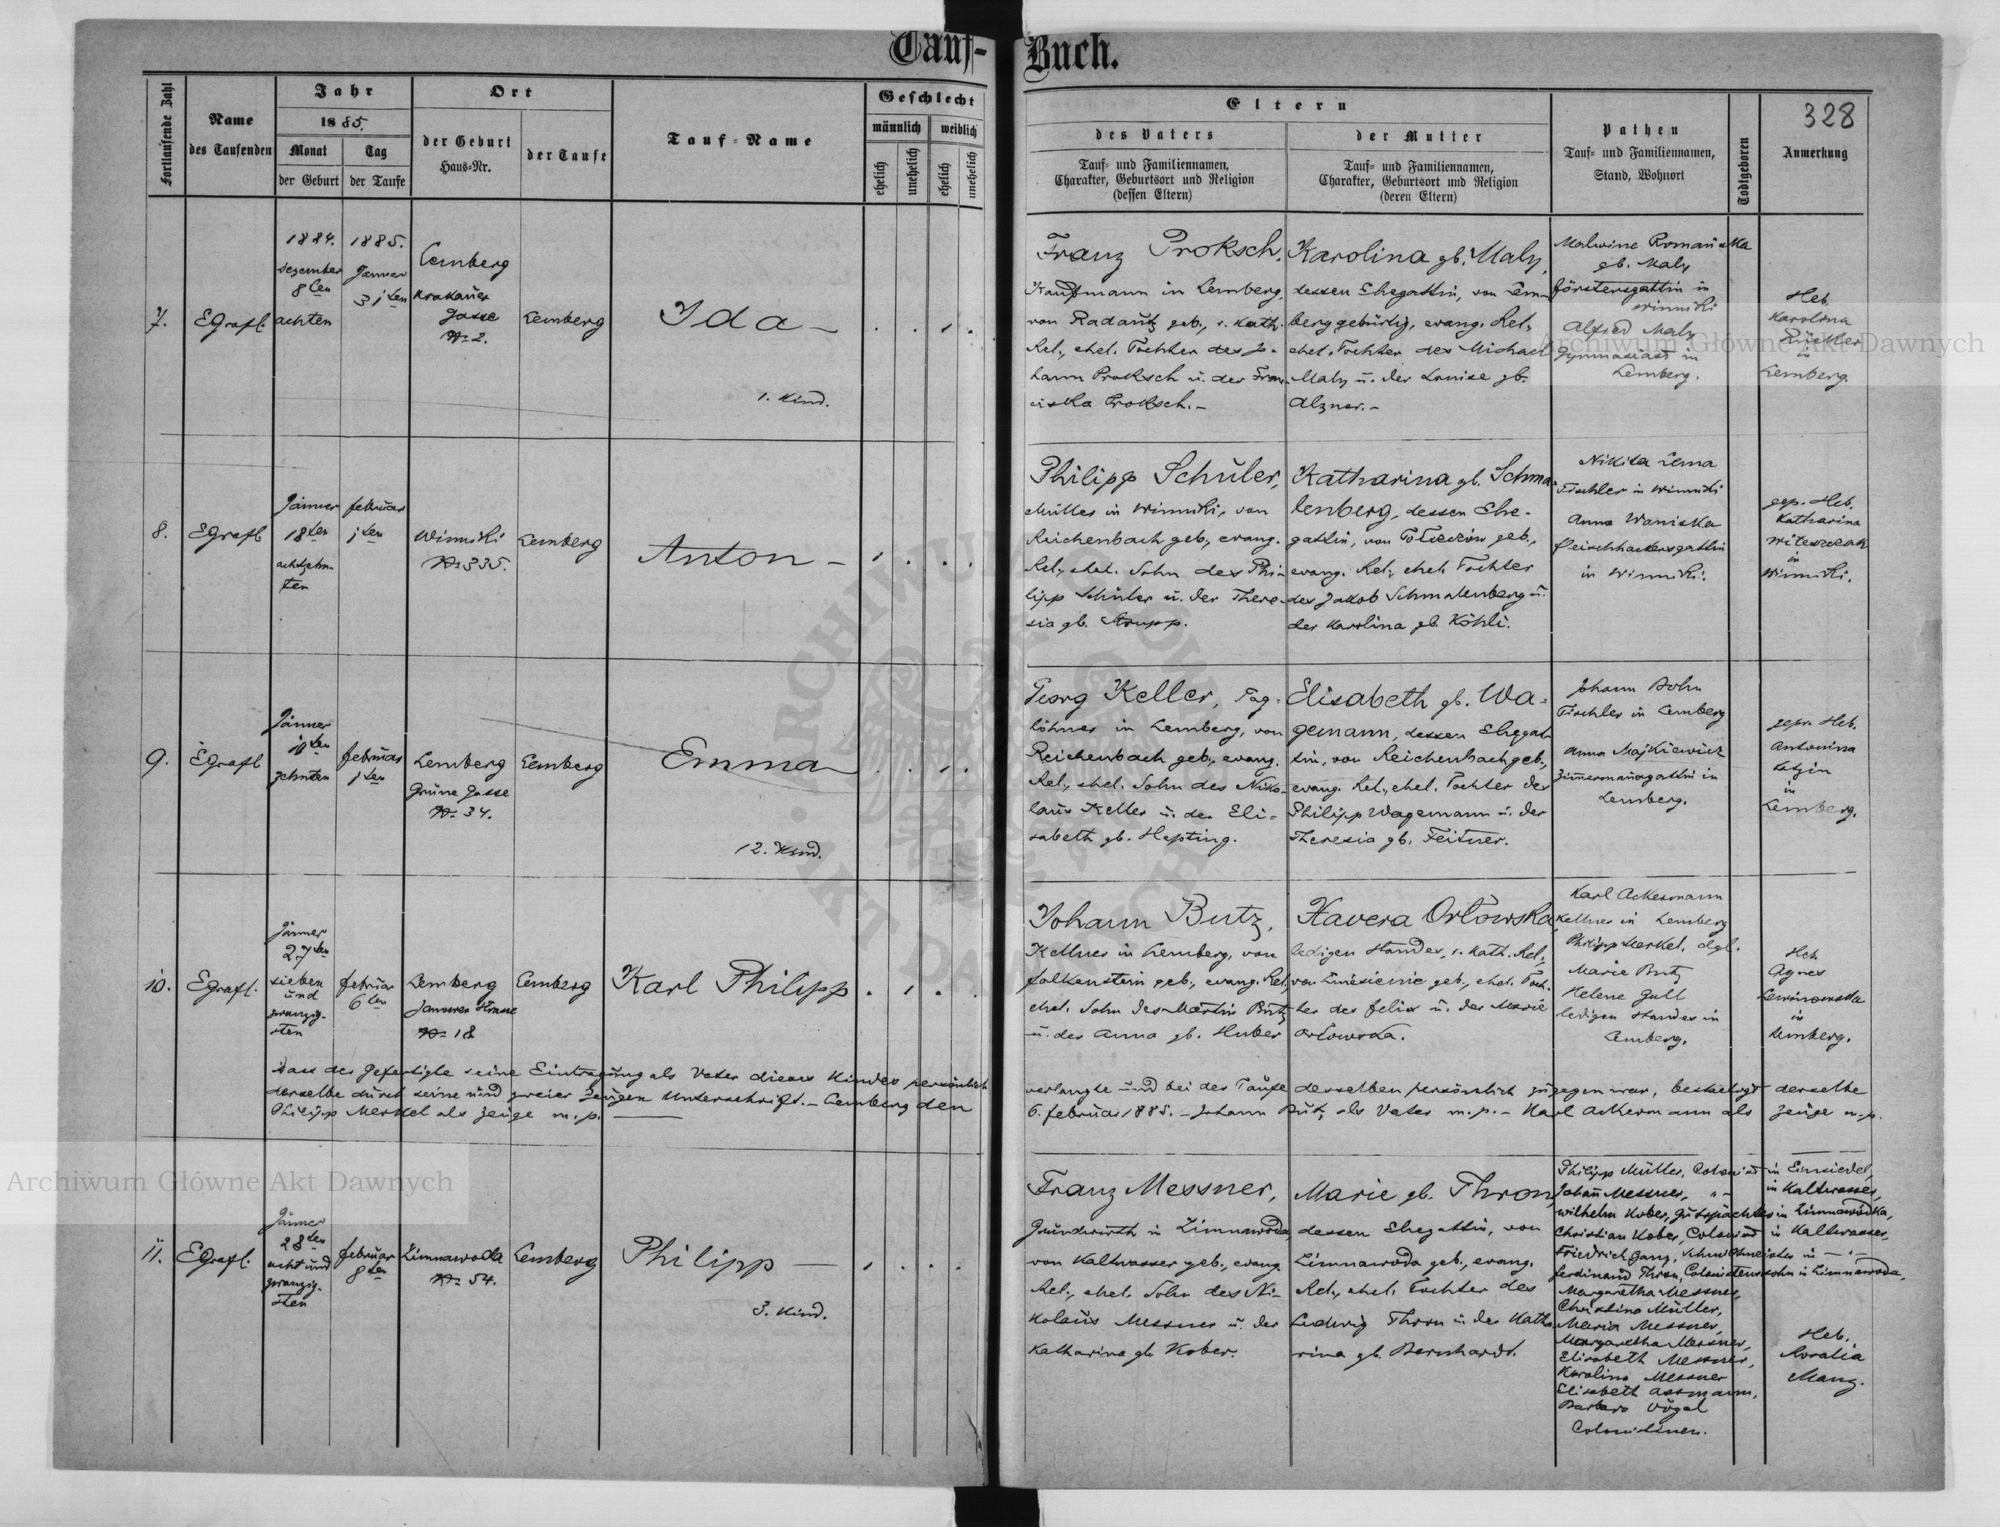 Tauf-Buch.
328
Fortlaufende Zahl
Name
des Taufenden
Jahr
1885.
Monat
der Geburt
Tag
der Taufe
Ort
der Geburt
Haus-Nr.
der Taufe
Tauf-Name
Geschlecht
männlich
weiblich
ehelich
unehelich
ehelich
unehelich
Eltern
des Vaters
Tauf- und Familiennamen,
Charakter, Geburtsort und Religion
(dessen Eltern)
der Mutter
Tauf- und Familiennamen,
Charakter, Geburtsort und Religion
(deren Eltern)
Pathen
Tauf- und Familiennamen,
Stand, Wohnort
Todtgeboren
Anmerkung
7.
EGrafl
1884.
Dezember
8ten
achten
1885.
Jänner
31ten
Lemberg
Krakauer
Gasse
No 2.
Lemberg
Ida
1. Kind.
Franz Proksch,
Kaufmann in Lemberg,
von Radautz geb., r. kath.
Rel., ehel. Tochter des Jo-
hann Proksch u. der Fran-
ciska Proksch.-
Karolina gb. Maly,
dessen Ehegattin, von Lem-
berg gebürtig, evang. Rel.,
ehel. Tochter des Michael
Maly u. der Louise gb.
Alzner.-
Malwine Romańska
gb. Maly
Förstersgattin in
Winniki
Alfred Maly
Gymnasiast in
Lemberg.
Heb.
Karolina
in
Lemberg.
8.
EGrafl
Jänner
18ten
achtzehn-
ten
februar
1ten
Winniki
No 335.
Lemberg
Anton -
Philipp Schüler,
Müller in Winniki, von
Reichenbach geb., evang.
Rel., ehel. Sohn des Phi-
lipp Schüler u. der There-
sia gb. Strupp.
Katharina gb. Schma-
lenberg, dessen Ehe-
gattin, von geb.,
evang. Rel., ehel. Tochter
des Jakob Schmalenberg u.
der Karolina gb. Köhli.
Nikita Lema
Tischler in Winniki
Anna Waniska
fleischhackersgattin
in Winniki.
gep. Heb.
Katharina
Witeszczak
in
Winniki.
9.
EGrafl
Jänner
10ten
zehnten
februar
1ten
Lemberg
Grüne Gasse
No 34.
Lemberg
Emma
12. Kind.
Georg Keller, Tag-
löhner in Lemberg, von
Reichenbach geb., evang.
Rel., ehel. Sohn des Niko-
laus Keller u. der Eli-
sabeth gb. Hepting.
Elisabeth gb. Wa-
gemann, dessen Ehegat-
tin, von Reichenbach geb.,
evang. Rel., ehel. Tochter des
Philipp Wagemann u. der
Theresia gb. Feitner.
Johann Bohn
Tischler in Lemberg
Anna Majkiewicz
Zimmermannsgattin in
Lemberg.
gepr. Heb.
Antonina
in
Lemberg.
10.
EGrafl.
Jänner
27ten
sieben
und
zwanzig-
sten
februar
6ten
Lemberg
Janower Strasse
No 18
Lemberg
Karl Philipp
Johann Butz,
Kellner in Lemberg, von
Falkenstein geb., evang. Rel.,
ehel. Sohn des Martin Butz
u. der Anna gb. Huber
Xavera Orłowska
ledigen Standes, r. kath. Rel.,
von geb., ehel. Toch-
ter des Felix u. der Marie
Orłowska.
Karl Ackermann
Kellner in Lemberg
Philipp Merkel, dgl.
Marie Butz
Helene Gull
ledigen Standes in
Lemberg.
Heb.
Agnes
in
Lemberg.
Dass der Gefertigte seine Eintragung als Vater dieses Kindes persönlich verlangte und bei der Taufe desselben persönlich zugegen war, bestätigt derselbe
derselbe durch seine und zweier Zeugen Unterschrift. - Lemberg den 6. februar 1885. - Johann Butz als Vater m.p. - Karl Ackermann als Zeuge m.p.
Philipp Merkel als Zeuge m.p.
11.
EGrafl.
Jänner
28ten
acht und
zwanzig-
sten
februar
8ten
Zimnawoda
No 54.
Lemberg
Philipp
3. Kind.
Franz Messner,
Grundwirth in Zimnawoda
von Kaltwasser geb., evang.
Rel., ehel. Sohn des Ni-
kolaus Messner u. der
Katharina gb. Kober.
Marie gb. Thron,
dessen Ehegattin, von
Zimnawoda geb., evang.
Rel., ehel. Tochter des
Ludwig Thron u. der Katha-
rina gb. Bernhardt.
Philipp Müller, Colonist in Einsiedel,
Johann Messner, " - in Kaltwasser,
Wilhelm Kober, Gutspächter in Zimnawoda,
Christian Kober, Colonist in Kaltwasser,
Friedrich Ganz, Schulmeister in - " -
Ferdinand Thron, Colonistenssohn in Zimnawoda,
Margaretha Messner,
Christina Müller,
Maria Messner,
Margaretha Messner,
Elisabeth Messner,
Karolina Messner
Elisabeth Assmann,
Barbara Vogel
Colonistinen.
Heb.
Rosalia
Manz.
Archiwum Główne Akt Dawnych
Archiwum Główne Akt Dawnych